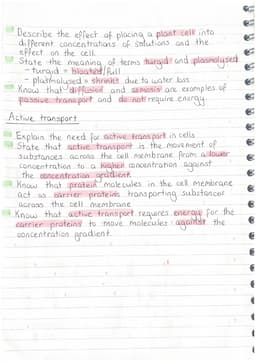 Describe the effect of placing a plant cell into
different concentrations of solutions and the
effect on the cell.
State the meaning of terms turgid and plasmolysed
- turgid = bloated/full
- plasmolysed = shrinks due to water loss
Know that diffusion and osmosis are examples of
passive transport and do not require energy.
Active transport
Explain the need for active transport in cells
State that active transport is the movement of
substances across the cell membrane from a lower
concentration to a higher concentration against
the concentration gradient.
Know that protein molecules in the cell membrane
act as carrier proteins transporting substances
across the cell membrane
Know that active transport requires energy for the
carrier proteins to move molecules against the
concentration gradient.